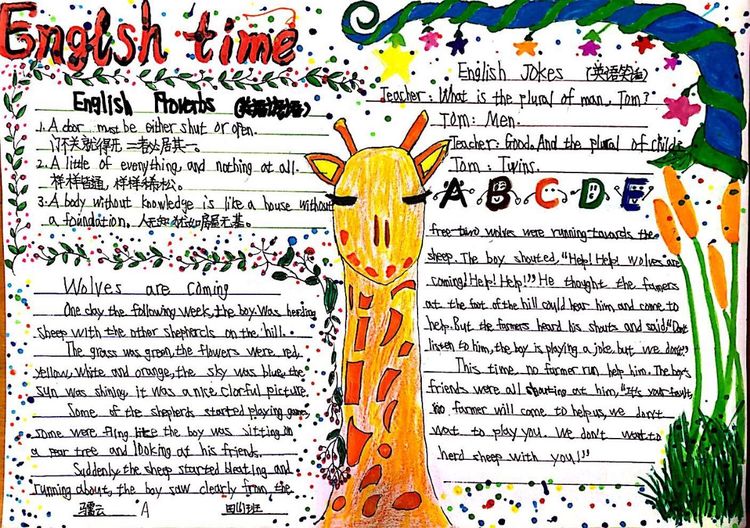 English time
English Proverbs (英语谚语)
1. A door must be either shut or open.
门不关就得开 二者必居其一。
2. A little of everything, and nothing at all.
样样皆通，样样稀松。
3. A body without knowledge is like a house without
a foundation. 人无知 如房屋无基。
Wolves are coming
One day the following week, the boy was herding
sheep with the other shepherds on the hill.
The grass was green, the flowers were red,
yellow, white and orange, the sky was blue, the
sun was shining it was a nice clorful picture.
Some of the shepherds started playing games
some were the boy was sitting in
a pear tree and looking at his friends.
Suddenly the sheep started bleating and
running about, the boy saw clearly from the
云 A 四(1)班
English Jokes (英语笑话)
Teacher: What is the plural of man, Tom?
Tom: Men.
Teacher: Good. And the plural of child?
Tom: Twins.
A B C D E
wolves were running towards the
sheep. The boy shouted, "Help! Help wolves are
coming! Help! Help!" He thought the famers
at the foot of the hill could hear him and come to
help. But the farmers heard his shuts and said "Don't
listen to him, the boy is playing a joke. but we don't!"
This time, no farmer run help him. The boy's
friends were all at him, "It's your fault,
no farmer will come to help us, we don't
wat to play you. We don't want to
herd sheep with you!"